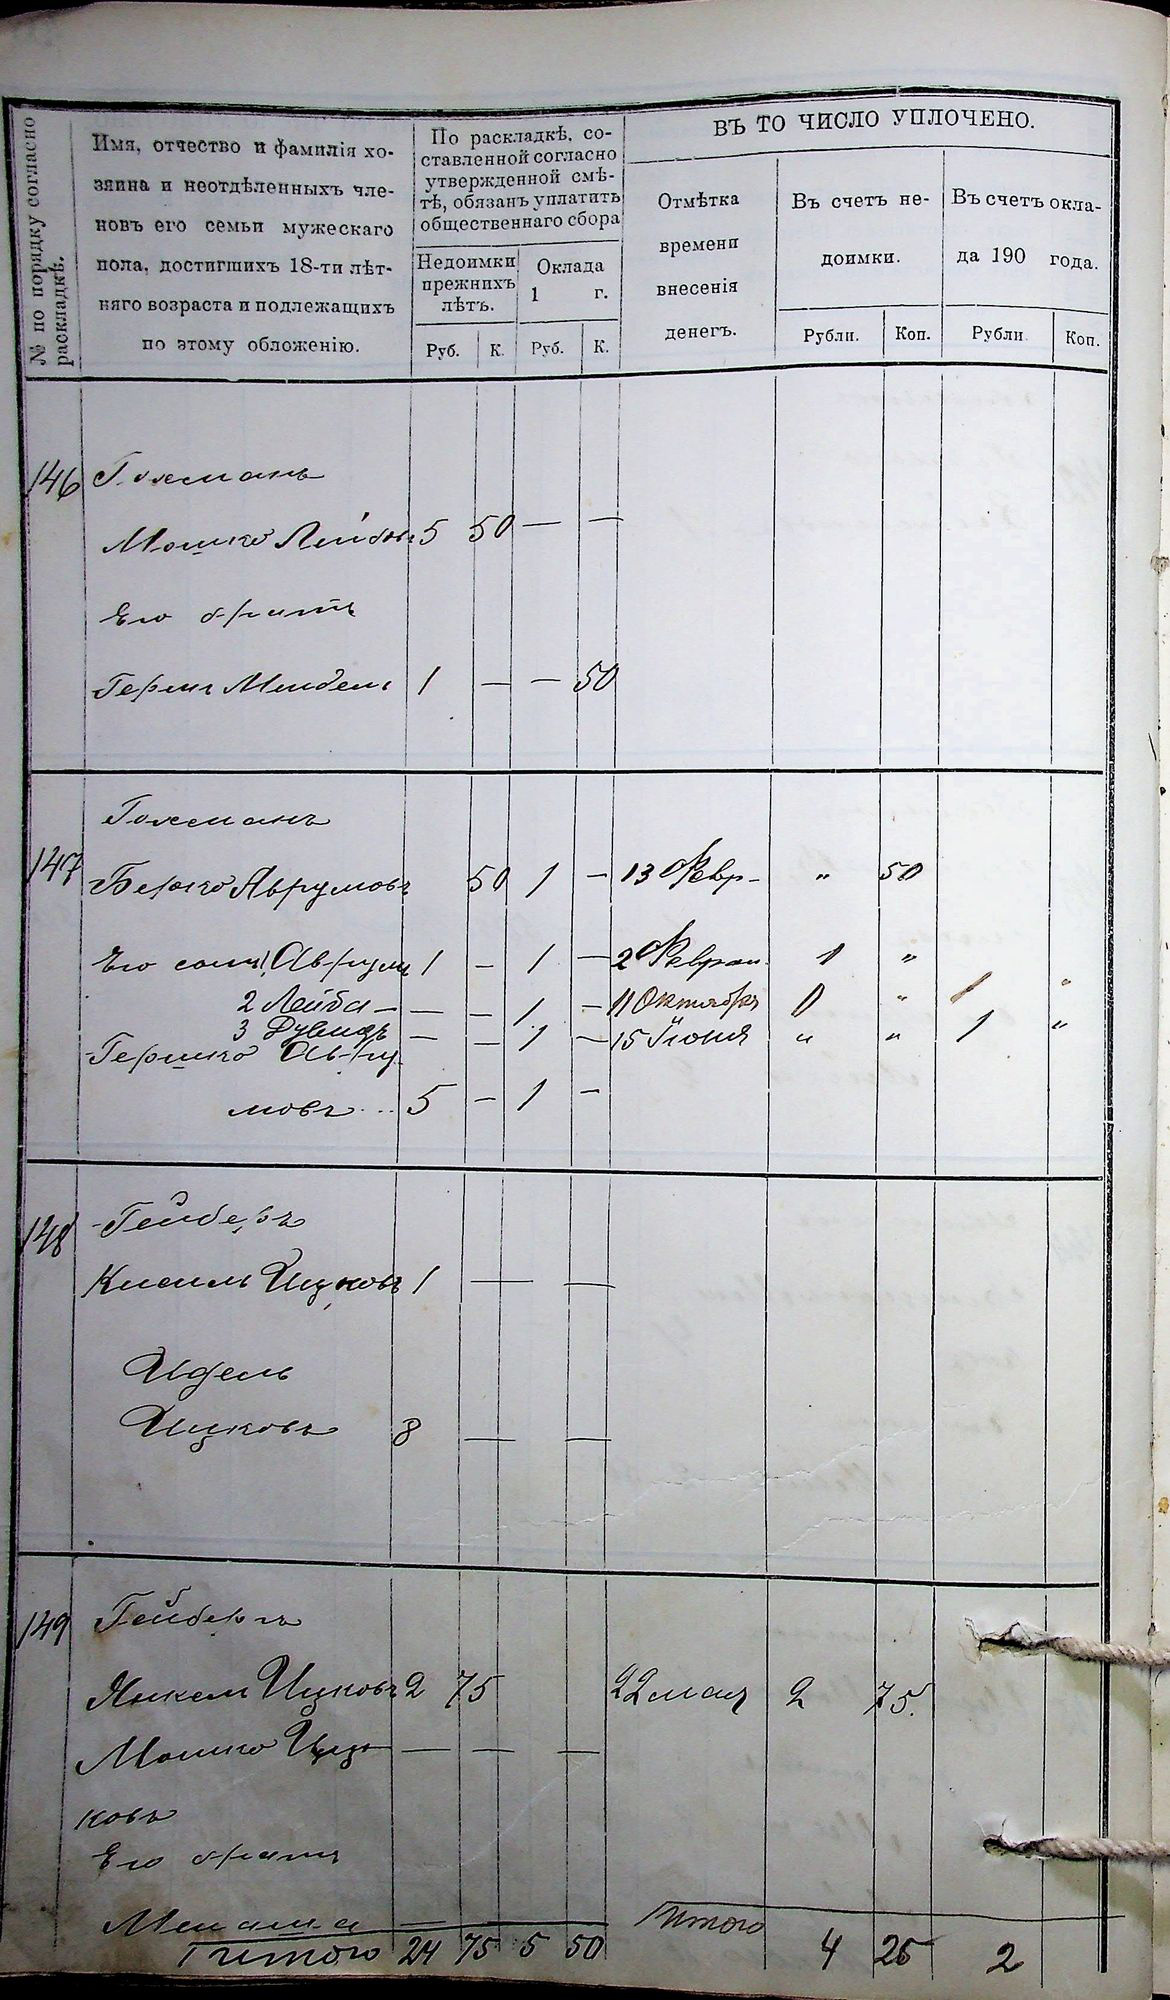 № по порядку согласно раскладкѣ.
Имя, отчество и фамилія хо-
зяина и неотдѣленныхъ чле-
новъ его семьи мужескаго
пола, достигшихъ 18-ти лѣт-
няго возраста и подлежащихъ
по этому обложенію.
По раскладкѣ, со-
ставленной согласно
утвержденной смѣ-
тѣ, обязанъ уплатить
общественнаго сбора
Недоимки
прежнихъ
лѣтъ.
Оклада
1 г.
Руб. К. Руб. К.
ВЪ ТО ЧИСЛО УПЛОЧЕНО.
Отмѣтка
времени
внесенія
денегъ.
Въ счетъ не-
доимки.
Рубли. Коп.
Въ счетъ окла-
да 190 года.
Рубли. Коп.
146
Мошко Лейбовъ 5 50 — —
Его братъ
Мендель 1 — — 50
147
Берко Аврумовъ 50 1 — 13 Февр- „ 50
Его сынъ 1 — 1 — 2 Феврал 1 „
2 Лейба — — — 1 — 11 Октября „ 1 „
3 Дувидъ — — 1 — 15 Іюня „ „ 1 „
Гершко Авру-
мовъ... 5 — 1 —
148 Гейберъ
Кисиль Ицковъ 1 — —
Идель
Ицковъ 8 — —
149
Янкель Ицковъ 2 75 22 мая 2 75.
Мошко Иц- — — —
ковъ
Его братъ
Менаша —
Итого 24 75 5 50 Итого 4 25 2